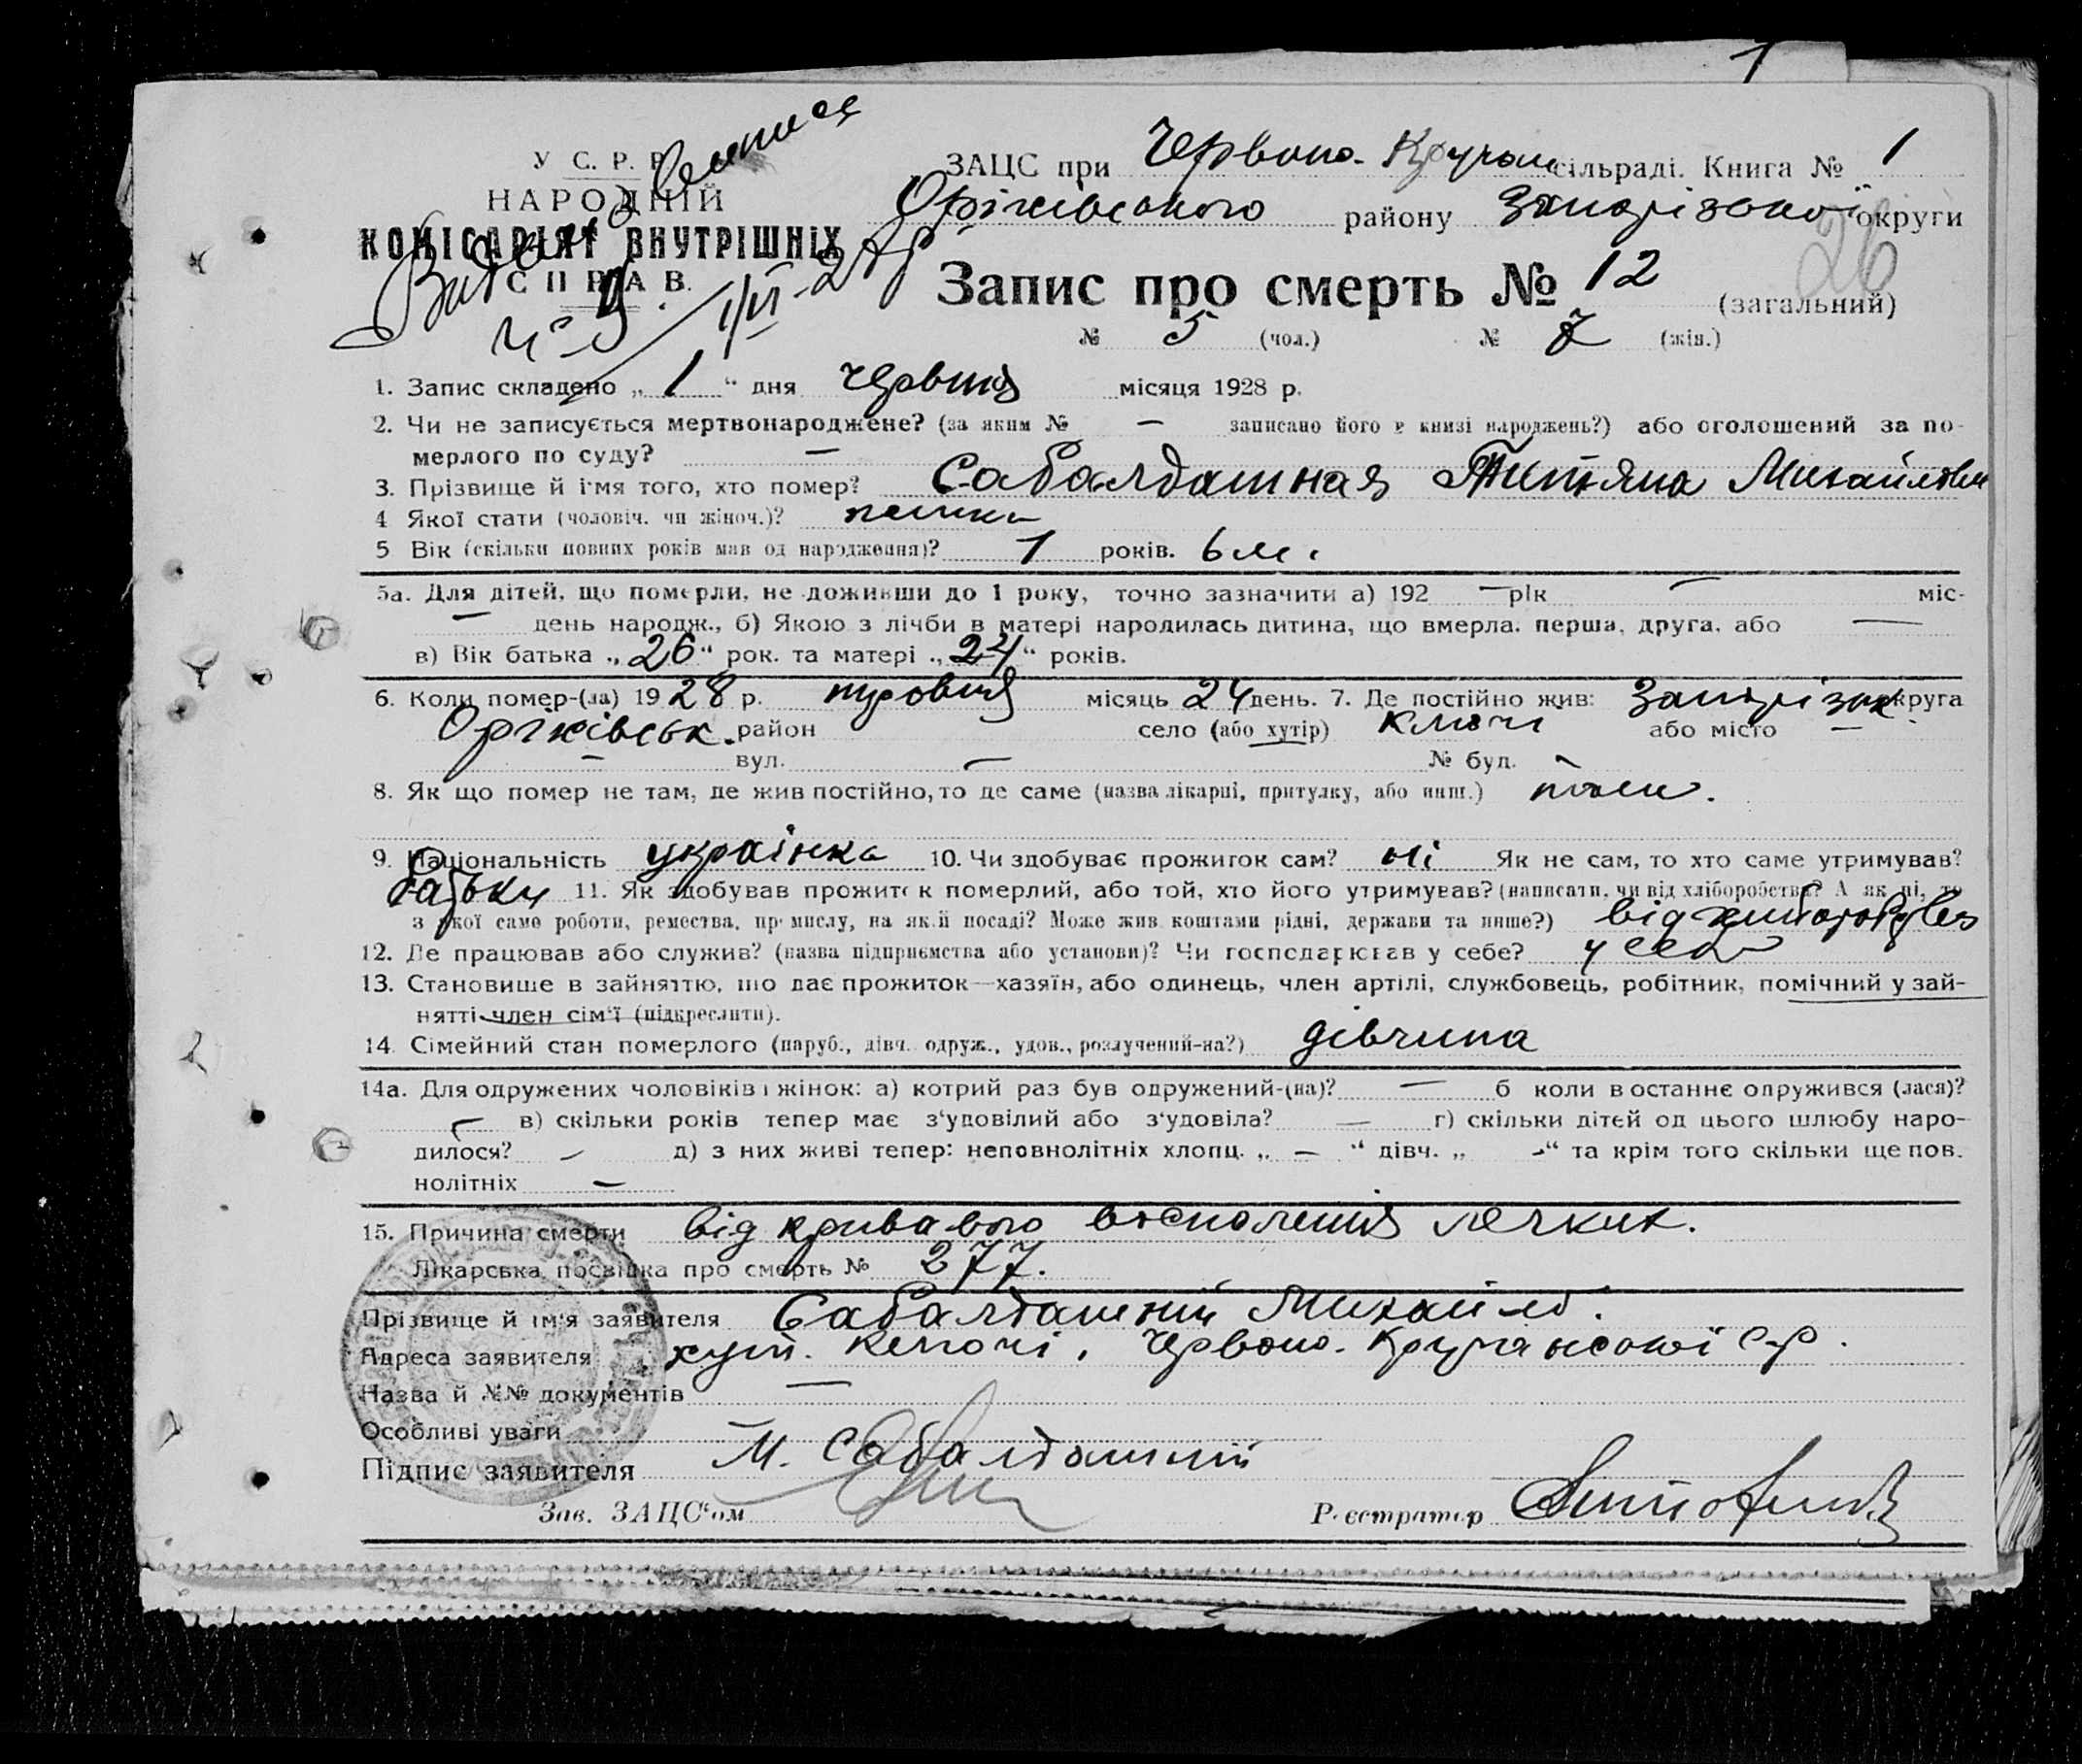 1
У С. Р. Р.
НАРОДНІЙ
КОМІСАРІЯТ ВНУТРІШНІХ
СПРАВ.
ЗАЦС при Червоно-Кручан сільраді. Книга № 1
Оріхівського району Запорізької округи
26
Запис про смерть № 12 (загальний)
№ 5 (чол.) № 7 (жін.)
1. Запис складено „ 1 “ дня червня місяця 1928 р.
2. Чи не записується мертвонароджене? (за яким № — записано його в книзі народжень?) або оголошений за по-
мерлого по суду? —
3. Прізвище й ім'я того, хто помер? Сабалдашная Титяна Михайловн
4 Якої стати (чоловіч. чи жіноч.)?
5 Вік (скільки повних років мав од народження)? 1 років. 6 м.
5а. Для дітей, що померли, не доживши до 1 року, точно зазначити а) 192 — рік — міс-
— день народж., б) Якою з лічби в матері народилась дитина, що вмерла. перша, друга, або —
в) Вік батька „ 26 “ рок. та матері „ 24 “ років.
6. Коли помер-(ла) 19 28 р. місяць 24 день. 7. Де постійно жив: Запорізьк округа
Оріхівськ. район село (або хутір) Ключі або місто —
— вул. — № буд.
8. Як що помер не там, де жив постійно, то де саме (назва лікарні, притулку, або инш.) там.
9. Національність українка 10. Чи здобуває прожиток сам? ні Як не сам, то хто саме утримував?
батьки 11. Як здобував прожиток померлий, або той, хто його утримував? (написати, чи від хліборобства? А як ні, то
з якої саме роботи, ремества, промислу, на якій посаді? Може жив коштами рідні, держави та инше?) від хліборобства
12. Де працював або служив? (назва підприємства або установи)? Чи господарював у себе? у себе
13. Становище в зайняттю, що дає прожиток—хазяїн, або одинець, член артілі, службовець, робітник, помічний у зай-
нятті член сім'ї (підкреслити).
14. Сімейний стан померлого (паруб., дівч. одруж., удов., розлучений-на?) дівчина
14а. Для одружених чоловіків і жінок: а) котрий раз був одружений-(на)? — б коли в останнє одружився (лася)?
— в) скільки років тепер має з'удовілий або з'удовіла? — г) скільки дітей од цього шлюбу наро-
дилося? — д) з них живі тепер: неповнолітніх хлопц. „ — “ дівч. „ — “ та крім того скільки ще пов.
нолітніх —
15. Причина смерти від кривавого воспаления легких.
Лікарська посвідка про смерть № 277.
Прізвище й ім'я заявителя Сабалдашній Михайло.
Адреса заявителя хут. Ключі, Червоно-Кручанської с-р.
Назва й №№ документів —
Особливі уваги
Підпис заявителя М. Сабалдашній
Зав. ЗАЦС'ом Реєстратор